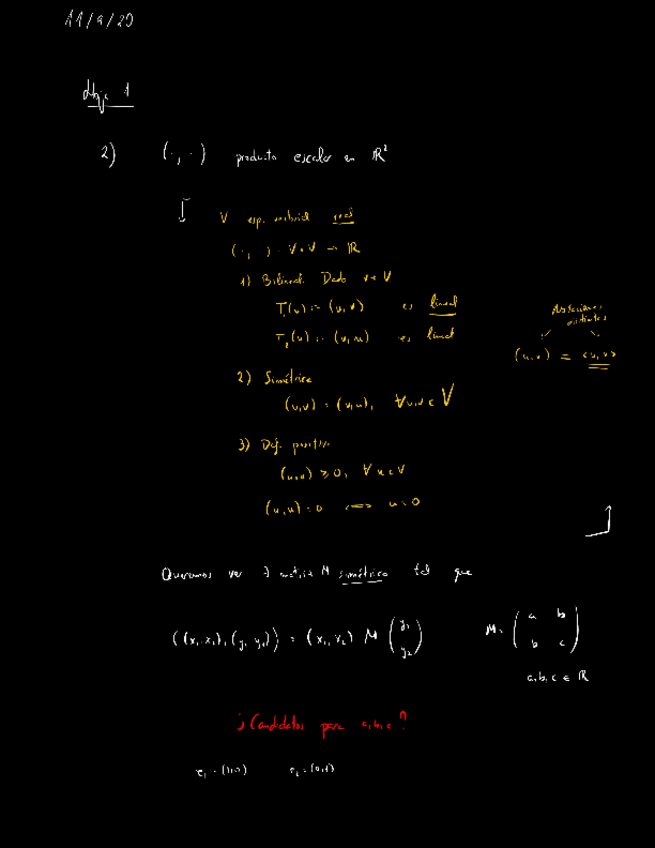 11/9/20
Hoja 1
2) (·, ·) producto escalar en ℝ²
V esp. vectorial real
(·, ·): V×V → ℝ
1) Bilineal. Dado v ∈ V
T₁(u) := (u,v) es lineal
T₂(u) := (v,u) es lineal
Notaciones
distintas
(u,v) = <u,v>
2) Simétrica
(u,v) = (v,u), ∀u,v ∈ V
3) Def. positiva
(u,u) ≥ 0, ∀ u ∈ V
(u,u) = 0 ⟺ u = 0
Queremos ver ∃ matriz M simétrica tal que
((x₁,x₂),(y₁,y₂)) = (x₁,x₂) M (y₁ y₂)
M = (a b
b c)
a,b,c ∈ ℝ
¿Candidatos para a,b,c?
e₁ = (1,0) e₂ = (0,1)